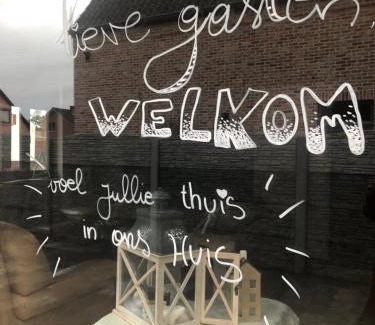 lieve gasten,
WELKOM
voel jullie thuis
in ons Huis